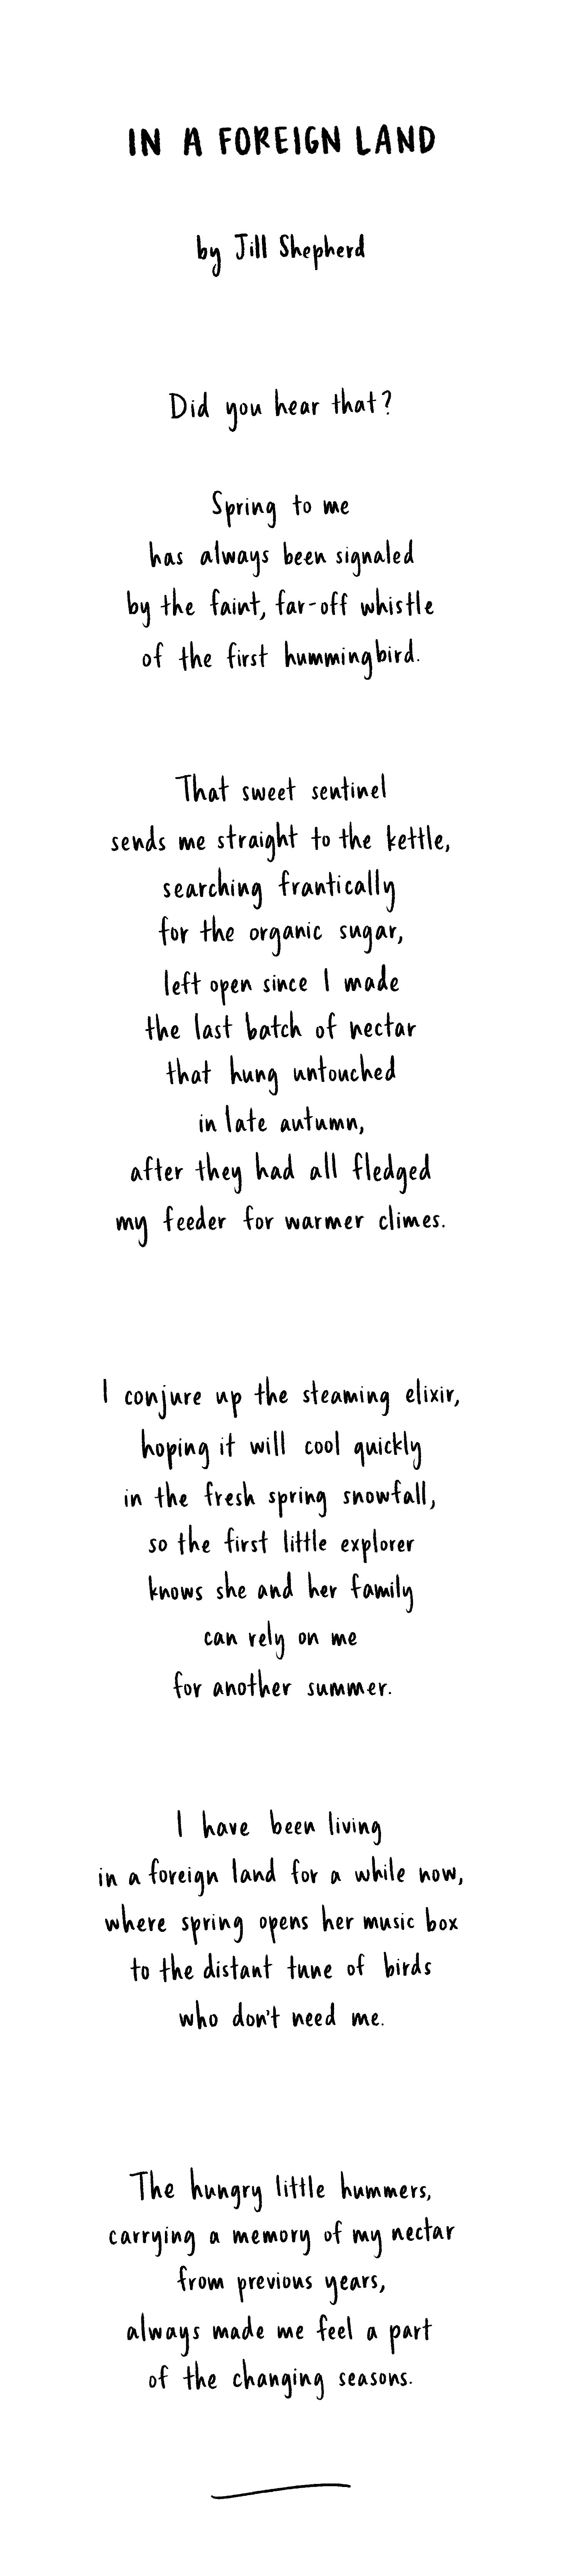 IN A FOREIGN LAND
by Jill Shepherd
Did you hear that?
Spring to me
has always been signaled
by the faint, far-off whistle
of the first hummingbird.
That sweet sentinel
sends me straight to the kettle,
searching frantically
for the organic sugar,
left open since I made
the last batch of nectar
that hung untouched
in late autumn,
after they had all fledged
my feeder for warmer climes.
I conjure up the steaming elixir,
hoping it will cool quickly
in the fresh spring snowfall,
so the first little explorer
knows she and her family
can rely on me
for another summer.
I have been living
in a foreign land for a while now,
where spring opens her music box
to the distant tune of birds
who don't need me.
The hungry little hummers,
carrying a memory of my nectar
from previous years,
always made me feel a part
of the changing seasons.